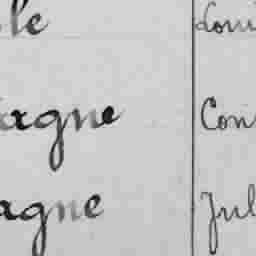 le Loui
argne Con
agne Jul